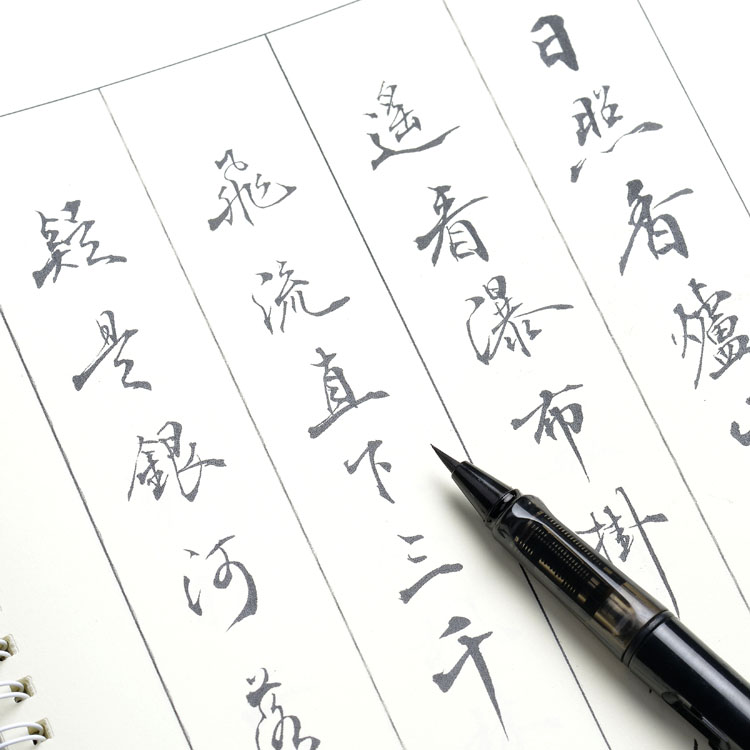 日照香爐
遙看瀑布掛
飛流直下三千
疑是銀河落